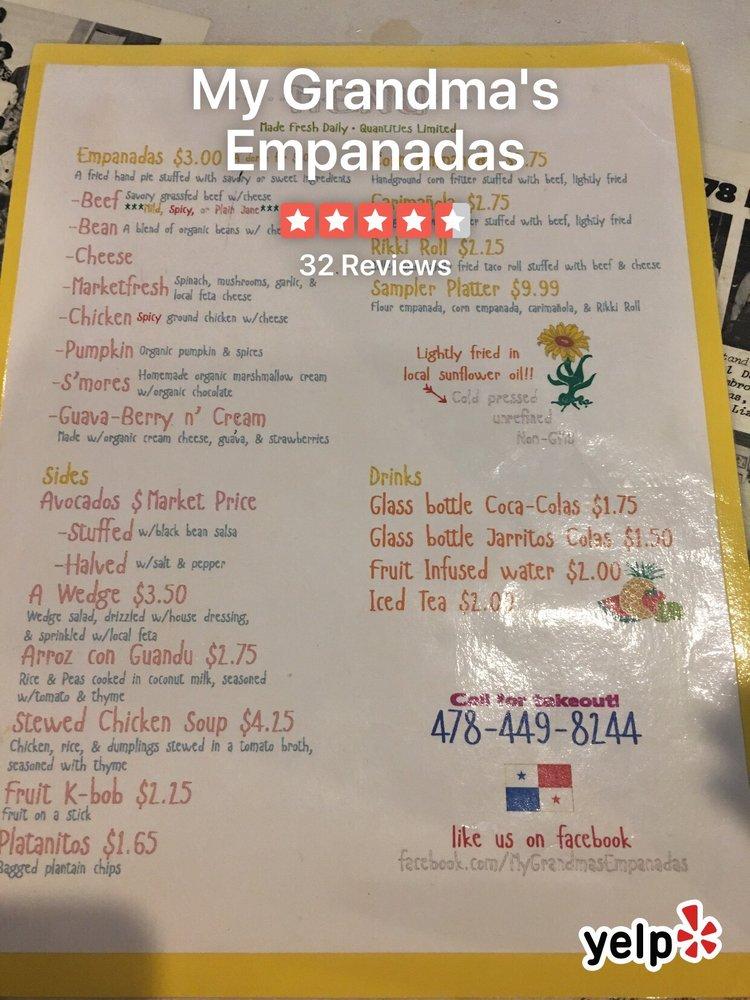 My Grandma's
Empanadas
32 Reviews
Made Fresh Daily • Quantities Limited
Empanadas $3.00
A fried hand pie stuffed with savory or sweet ingredients
-Beef Savory grassfed beef w/cheese
***Mild, Spicy, or Plain Jane***
-Bean A blend of organic beans w/
-Cheese
-Marketfresh Spinach, mushrooms, garlic, &
local feta cheese
-Chicken Spicy ground chicken w/cheese
-Pumpkin Organic pumpkin & spices
-S'mores Homemade organic marshmallow cream
w/organic chocolate
-Guava-Berry n' Cream
Made w/organic cream cheese, guava, & strawberries
Handground corn fritter stuffed with beef, lightly fried
Carimañola $2.75
stuffed with beef, lightly fried
Rikki Roll $2.25
fried taco roll stuffed with beef & cheese
Sampler Platter $9.99
Flour empanada, corn empanada, carimañola, & Rikki Roll
Lightly fried in
local sunflower oil!!
Cold pressed
unrefined
Non-GMO
Sides
Avocados $ Market Price
-Stuffed w/black bean salsa
-Halved w/salt & pepper
A Wedge $3.50
Wedge salad, drizzled w/house dressing,
& sprinkled w/local feta
Arroz con Guandu $2.75
Rice & Peas cooked in coconut milk, seasoned
w/tomato & thyme
Stewed Chicken Soup $4.25
Chicken, rice, & dumplings stewed in a tomato broth,
seasoned with thyme
Fruit K-bob $2.25
Fruit on a stick
Platanitos $1.65
Bagged plantain chips
Drinks
Glass bottle Coca-Colas $1.75
Glass bottle Jarritos Colas $1.50
Fruit Infused water $2.00
Iced Tea $2.00
Call for takeout!
478-449-8244
like us on facebook
facebook.com/MyGrandmasEmpanadas
yelp